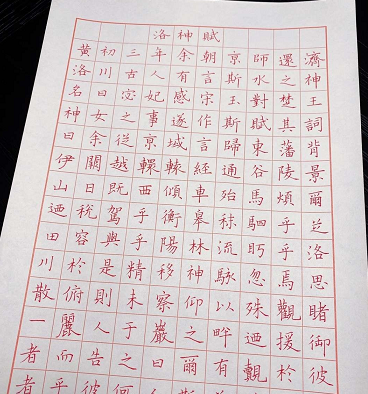 洛神賦
黃初三年余朝京師還濟
洛川古人有言斯水之神
名曰宓妃感宋玉對楚王
神女之事遂作斯賦其詞
曰余從京域言歸東藩背
伊闕越轘轅經通谷陵景
山日既西傾車殆馬煩爾
迺稅駕乎衡皋秣駟乎芝
田容與乎陽林流眄乎洛
川於是精移神駭忽焉思
散俯則未察仰以殊觀睹
一麗人于巖之畔迺援御
者而告之曰爾有覿於彼
者乎彼何人斯